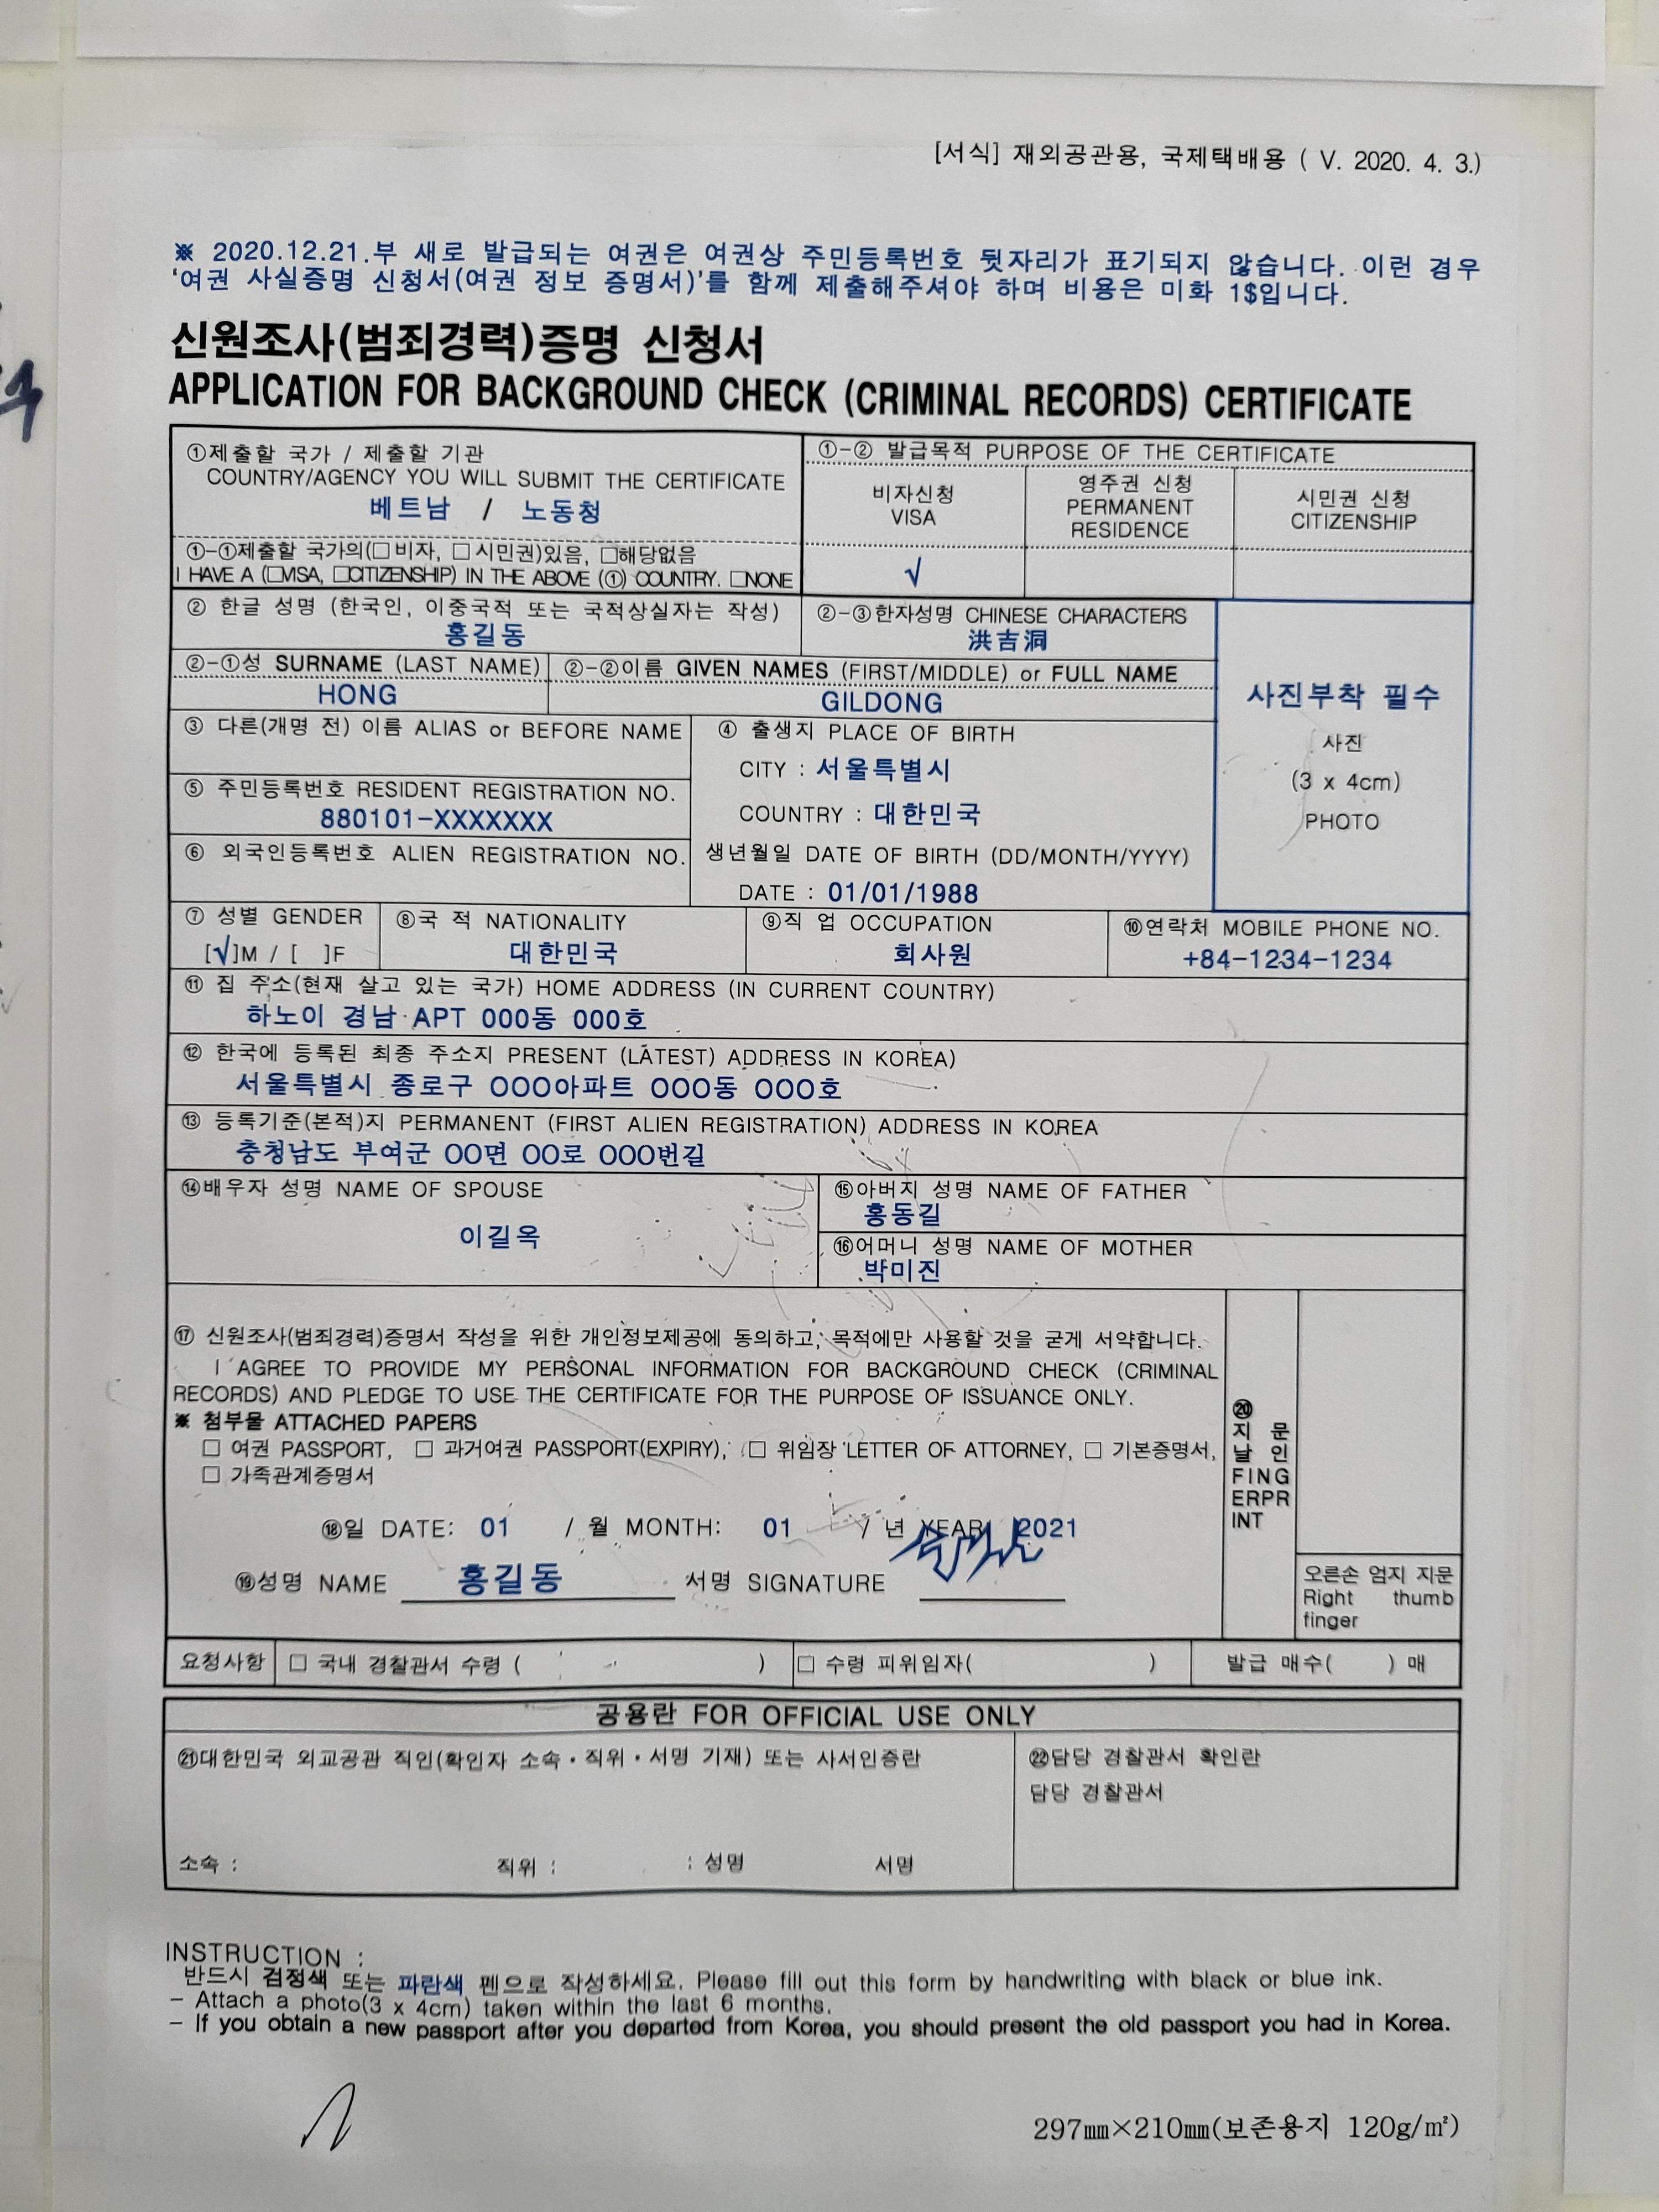 [서식] 재외공관용, 국제택배용 ( V. 2020. 4. 3.)
※ 2020.12.21.부 새로 발급되는 여권은 여권상 주민등록번호 뒷자리가 표기되지 않습니다. 이런 경우
'여권 사실증명 신청서(여권 정보 증명서)'를 함께 제출해주셔야 하며 비용은 미화 1$입니다.
신원조사(범죄경력)증명 신청서
APPLICATION FOR BACKGROUND CHECK (CRIMINAL RECORDS) CERTIFICATE
①제출할 국가 / 제출할 기관
COUNTRY/AGENCY YOU WILL SUBMIT THE CERTIFICATE
베트남 / 노동청
①-①제출할 국가의(□ 비자, □ 시민권)있음, □해당없음
I HAVE A (□VISA, □CITIZENSHIP) IN THE ABOVE (①) COUNTRY. □NONE
①-② 발급목적 PURPOSE OF THE CERTIFICATE
비자신청
VISA
영주권 신청
PERMANENT
RESIDENCE
시민권 신청
CITIZENSHIP
√
② 한글 성명 (한국인, 이중국적 또는 국적상실자는 작성)
홍길동
②-③한자성명 CHINESE CHARACTERS
洪吉洞
②-①성 SURNAME (LAST NAME)
HONG
②-②이름 GIVEN NAMES (FIRST/MIDDLE) or FULL NAME
GILDONG
사진부착 필수
사진
(3 x 4cm)
PHOTO
③ 다른(개명 전) 이름 ALIAS or BEFORE NAME
④ 출생지 PLACE OF BIRTH
CITY : 서울특별시
COUNTRY : 대한민국
⑤ 주민등록번호 RESIDENT REGISTRATION NO.
880101-XXXXXXX
⑥ 외국인등록번호 ALIEN REGISTRATION NO.
생년월일 DATE OF BIRTH (DD/MONTH/YYYY)
DATE : 01/01/1988
⑦ 성별 GENDER
[√]M / [ ]F
⑧국 적 NATIONALITY
대한민국
⑨직 업 OCCUPATION
회사원
⑩연락처 MOBILE PHONE NO.
+84-1234-1234
⑪ 집 주소(현재 살고 있는 국가) HOME ADDRESS (IN CURRENT COUNTRY)
하노이 경남 APT 000동 000호
⑫ 한국에 등록된 최종 주소지 PRESENT (LATEST) ADDRESS IN KOREA)
서울특별시 종로구 OOO아파트 OOO동 OOO호
⑬ 등록기준(본적)지 PERMANENT (FIRST ALIEN REGISTRATION) ADDRESS IN KOREA
충청남도 부여군 OO면 OO로 OOO번길
⑭배우자 성명 NAME OF SPOUSE
이길옥
⑮아버지 성명 NAME OF FATHER
홍동길
⑯어머니 성명 NAME OF MOTHER
박미진
⑰ 신원조사(범죄경력)증명서 작성을 위한 개인정보제공에 동의하고, 목적에만 사용할 것을 굳게 서약합니다.
I AGREE TO PROVIDE MY PERSONAL INFORMATION FOR BACKGROUND CHECK (CRIMINAL
RECORDS) AND PLEDGE TO USE THE CERTIFICATE FOR THE PURPOSE OF ISSUANCE ONLY.
※ 첨부물 ATTACHED PAPERS
□ 여권 PASSPORT, □ 과거여권 PASSPORT(EXPIRY), □ 위임장 LETTER OF ATTORNEY, □ 기본증명서,
□ 가족관계증명서
⑱일 DATE: 01 / 월 MONTH: 01 / 년 YEAR: 2021
⑲성명 NAME 홍길동 서명 SIGNATURE
⑳
지 문
날 인
FING
ERPR
INT
오른손 엄지 지문
Right thumb
finger
요청사항
□ 국내 경찰관서 수령 ( )
□ 수령 피위임자( )
발급 매수( ) 매
공용란 FOR OFFICIAL USE ONLY
㉑대한민국 외교공관 직인(확인자 소속·직위·서명 기재) 또는 사서인증란
소속 : 직위 : : 성명 서명
㉒담당 경찰관서 확인란
담당 경찰관서
INSTRUCTION :
반드시 검정색 또는 파란색 펜으로 작성하세요. Please fill out this form by handwriting with black or blue ink.
- Attach a photo(3 x 4cm) taken within the last 6 months.
- If you obtain a new passport after you departed from Korea, you should present the old passport you had in Korea.
297㎜×210㎜(보존용지 120g/㎡)